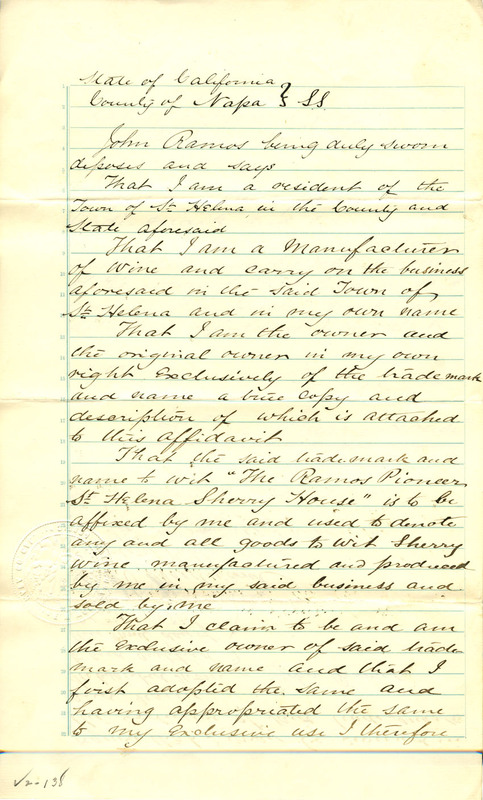 State of California }
County of Napa } SS
John Ramos being duly sworn
deposes and says
That I am a resident of the
Town of St Helena in the County and
State aforesaid
That I am a Manufacturer
of Wine and carry on the business
aforesaid in the said Town of
St Helena and in my own name
That I am the owner and
the original owner in my own
right Exclusively of the trade mark
and name a true copy and
description of which is attached
to this affidavit
That the said trade mark and
name to wit "The Ramos Pioneer
St Helena Sherry House" is to be
affixed by me and used to denote
any and all goods to wit Sherry
Wine manufactured and produced
by me in my said business and
sold by me
That I claim to be and am
the exclusive owner of said trade
mark and name and that I
first adopted the same and
having appropriated the same
to my exclusive use I therefore